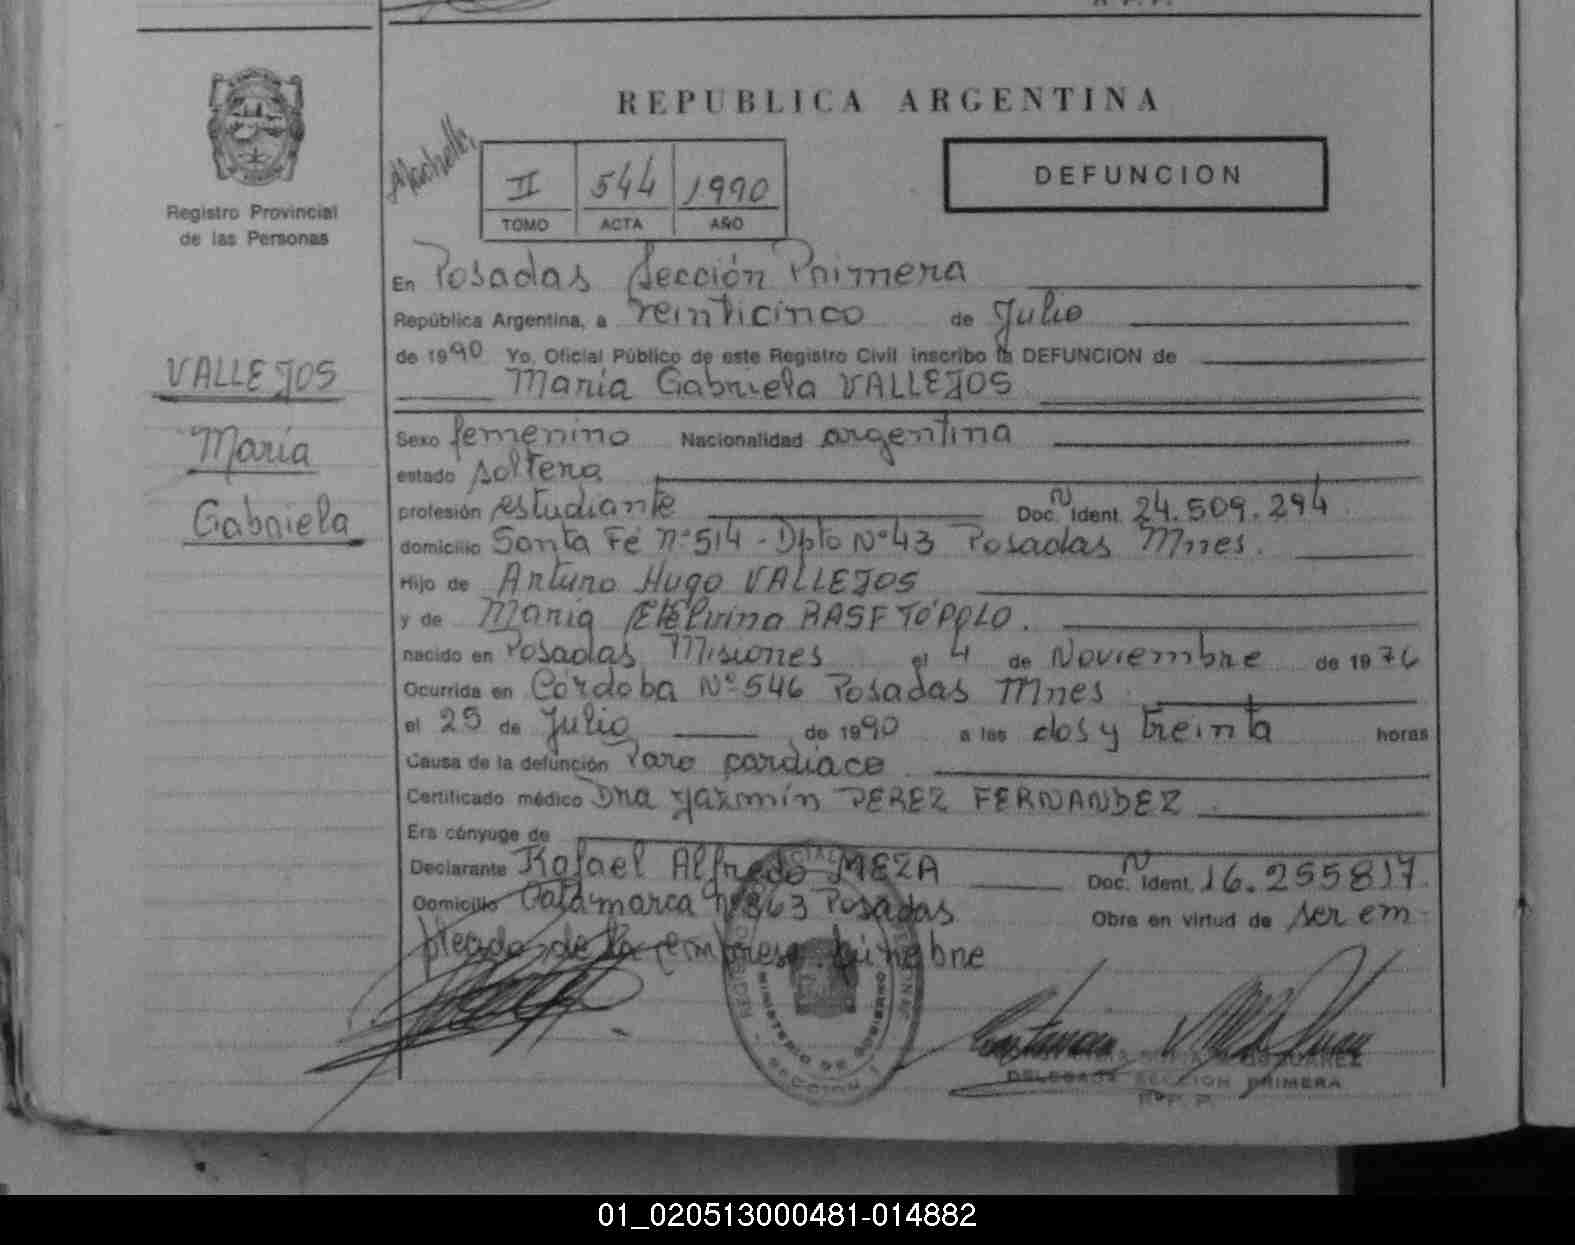 REPUBLICA ARGENTINA
Registro Provincial
de las Personas
II 544 1990
TOMO ACTA AÑO
DEFUNCION
En Posadas Sección Primera
República Argentina, a veinticinco de Julio
de 1990 Yo, Oficial Público de este Registro Civil inscribo la DEFUNCION de
María Gabriela VALLEJOS
VALLEJOS
María
Gabriela
Sexo femenino Nacionalidad argentina
estado soltera
profesión estudiante Doc. N Ident. 24.509.294
domicilio Santa Fé Nº 514 - Dpto Nº 43 Posadas Mnes.
Hijo de Arturo Hugo VALLEJOS
y de María Etelvina
nacido en Posadas Misiones el 4 de Noviembre de 19
Ocurrida en Córdoba Nº 546 Posadas Mnes
el 25 de Julio de 1990 a las dos y treinta horas
Causa de la defunción Paro cardiaco
Certificado médico Dra Yazmín PEREZ FERNANDEZ
Era cónyuge de
Declarante Rafael Alfredo MEZA Doc. N Ident. 16.255817
Domicilio Catamarca Posadas Obra en virtud de ser em-
pleado de la empresa fúnebre
MINISTERIO DE GOBIERNO
SECCION 1
DELEGADA SECCION PRIMERA
R. P. P.
01_020513000481-014882